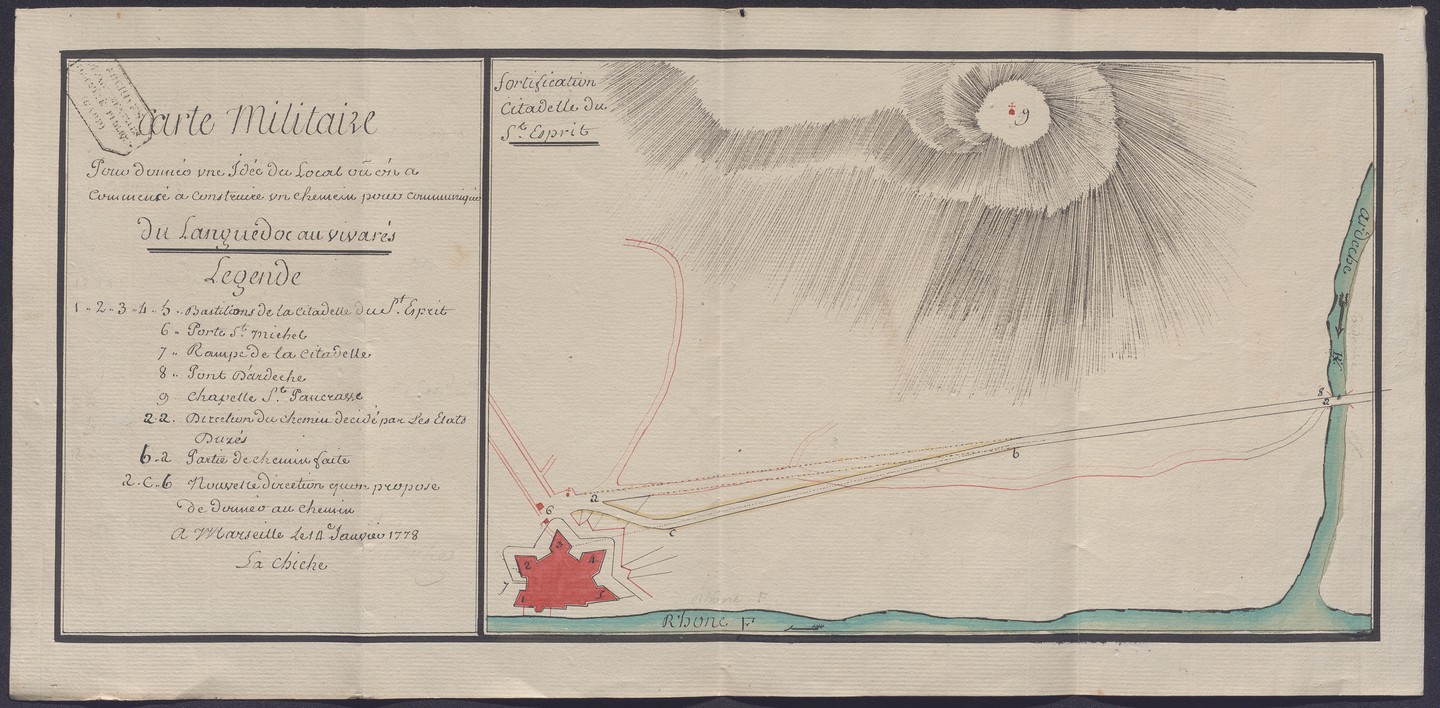 Carte Militaire
Pour donnéo vne Idée du Local oû ón a
Commencé a construire vn chemein pour communiquéo
du Languedoc au vivarés
Legende
1 .. 2 .. 3 .. 4 .. 5 .. Bastilions de la citadelle du St. Esprit
6 .. Porte St. michel
7 .. Rampe de la citadelle
8 .. Pont D'ardeche
9 Chapelle St. Pancrasse
a.a. Direction du chemin decidé par Les Etats
Duzés
b..a Partie de chemin faite
a.c..b Nouvelle direction qu'on propose
de donnéo au chemin
A Marseille Le Janviéo 1778
La Chiche
fortification
Citadelle du
St. Esprit
9
ardeche
R.
8
a
b
a
6
c
3
2
4
7
1
5
Rhone F
Rhone F